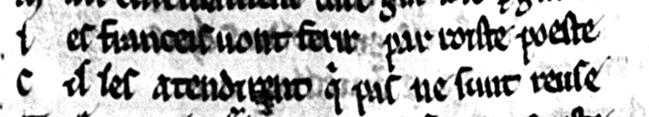 l es franceis uont ferir par roiste poeste
C il les atendirent q̇ pas ne sunt reuse